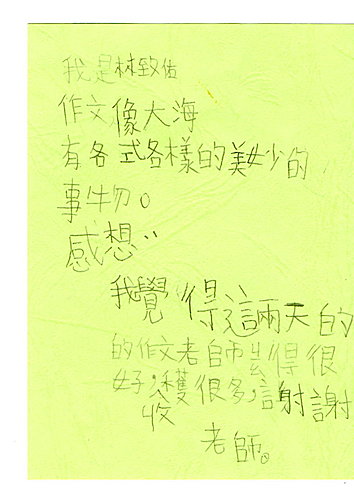 我是林致佑
作文像大海
有各式各樣的美妙的
事物。
感想：
我覺得這兩天的
的作文老師出得很
好，收穫很多，謝謝
老師。